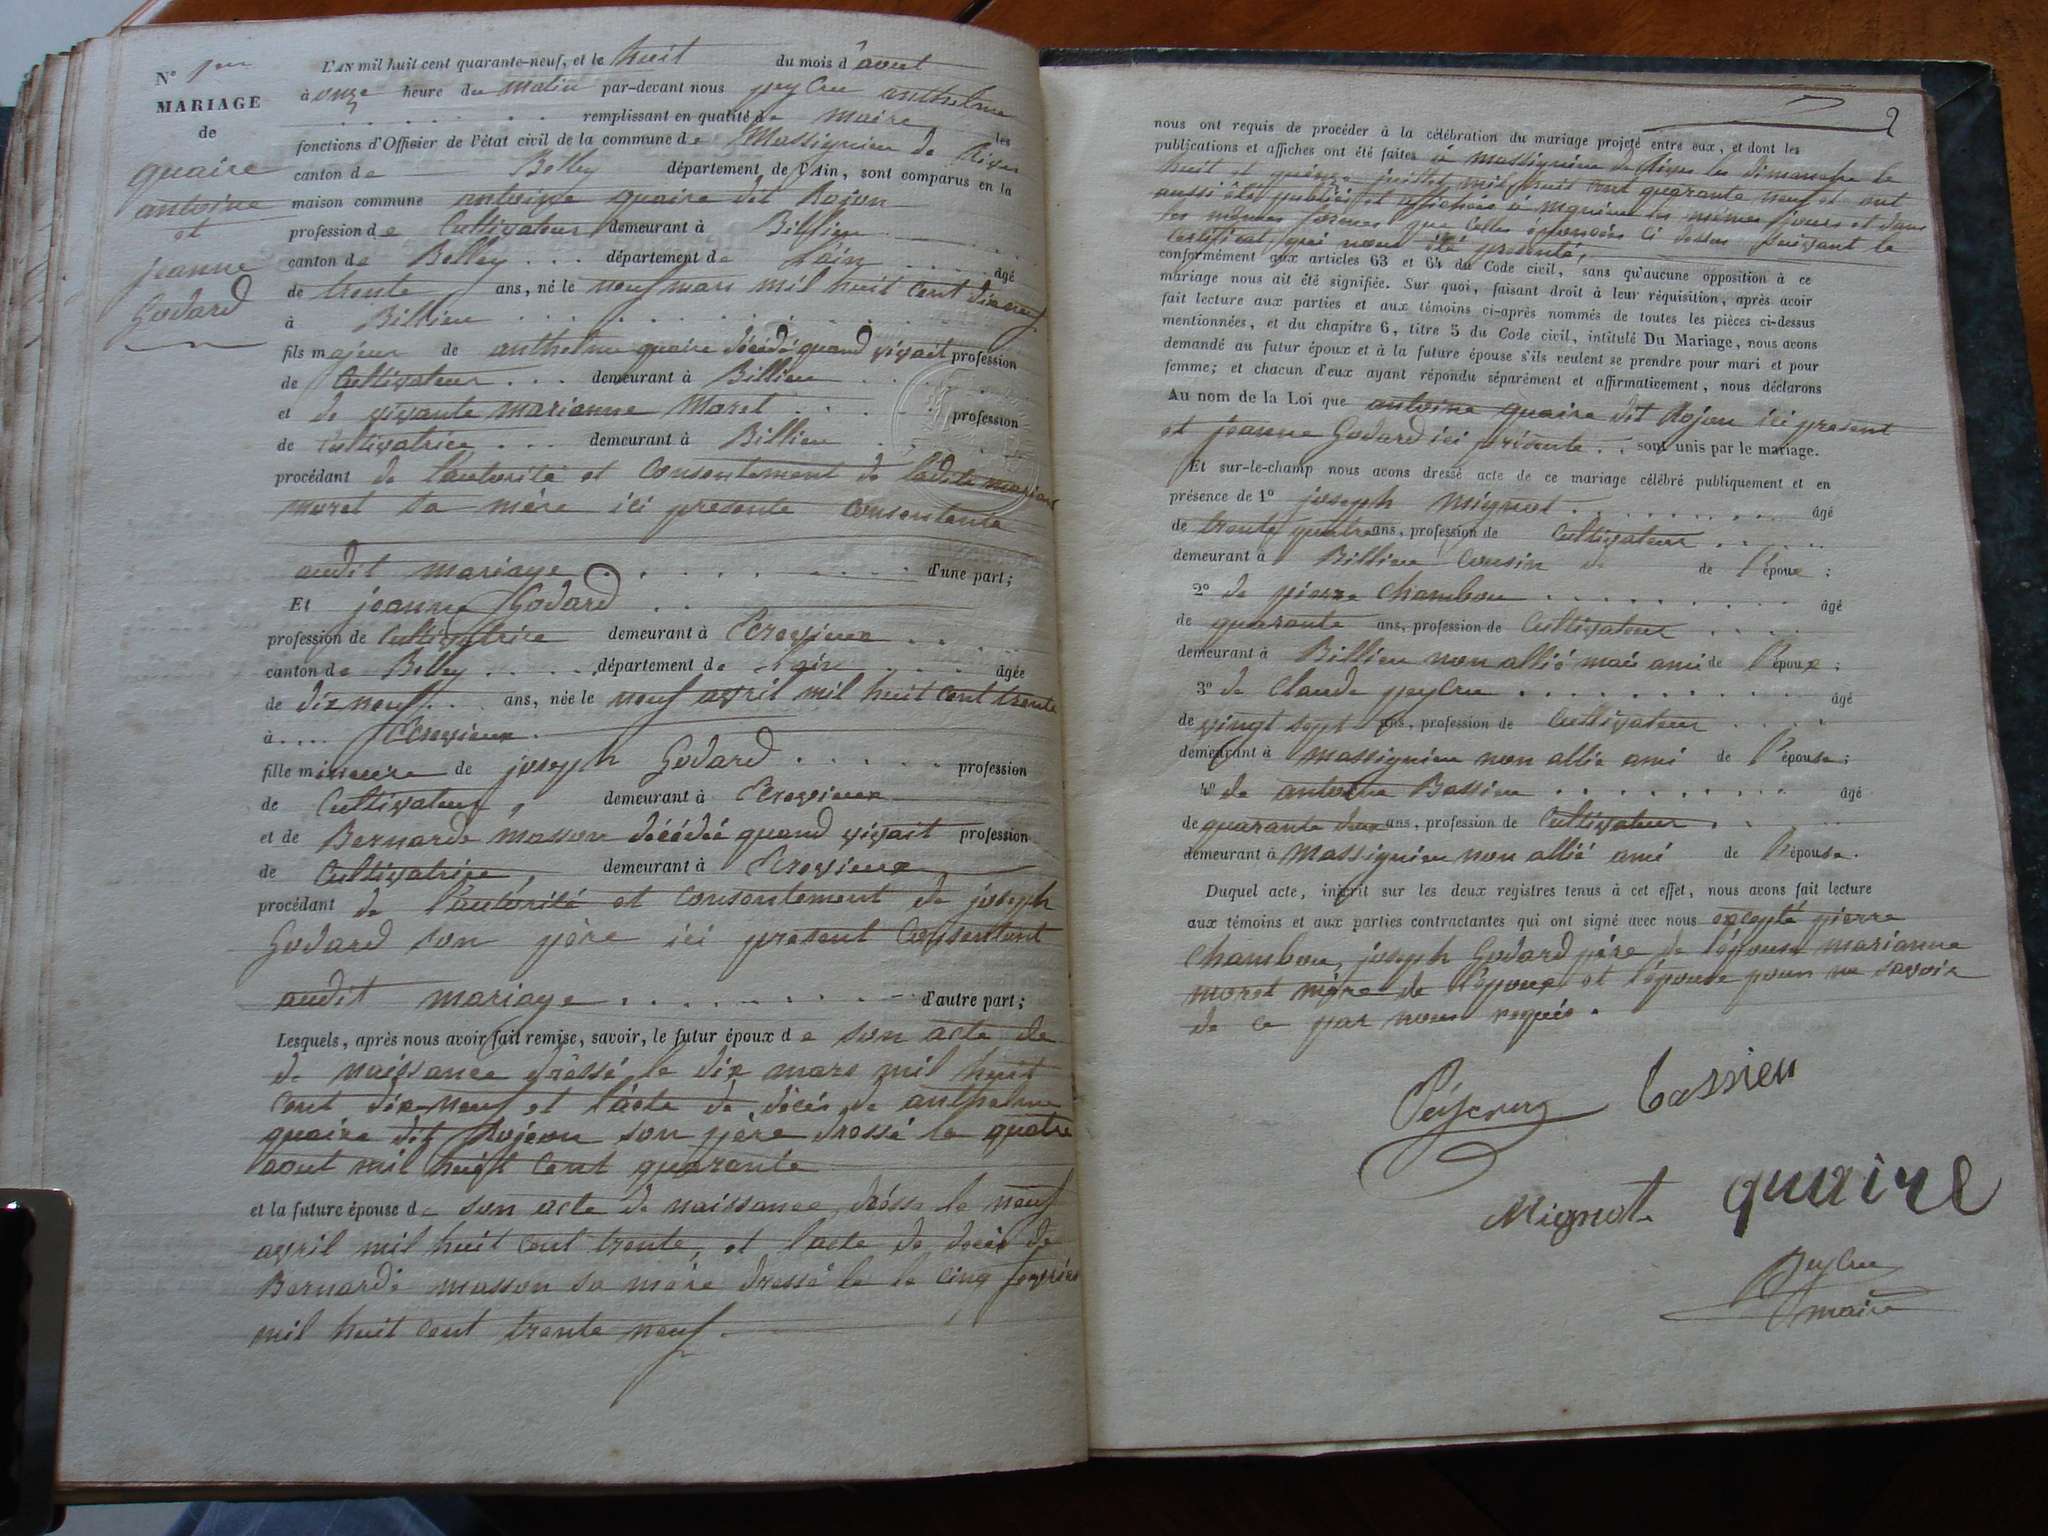 N.o 1er
MARIAGE
de
quaire
antoine
et
jeanne
Godard
L'AN mil huit cent quarante-neuf, et le huit du mois d'août
à onze heure du matin par-devant nous peycru anthelme
remplissant en qualité de maire les
fonctions d'Officier de l'état civil de la commune de Massignieu de Rives
canton de Belley département de l'Ain, sont comparus en la
maison commune antoine quaire dit Rojon
profession de Cultivateur demeurant à Billieu
canton de Belley département de l'ain âgé
de trente ans, né le neuf mars mil huit cent dixneuf
à Billieu
fils majeur de anthelme quaire décédé quand vivait profession
de Cultivateur demeurant à Billieu
et de vivante marianne Moret profession
de Cultivatrice demeurant à Billieu
procédant de l'autorité et Consentement de ladite mariane
moret sa mère ici presente Consentente
audit mariage d'une part;
Et jeanne Godard
profession de Cultivatrice demeurant à Ecrevieux
canton de Belley département de l'ain âgée
de dix neuf ans, née le neuf avril mil huit cent trente
à Ecrevieux
fille mineure de joseph Godard profession
de Cultivateur, demeurant à Ecrevieux
et de Bernarde masson décédée quand vivait profession
de Cultivatrice, demeurant à Ecrevieux
procédant de l'autorité et consentement de joseph
Godard son père ici present Consentant
audit mariage d'autre part;
Lesquels, après nous avoir fait remise, savoir, le futur époux de son acte de
de naissance dressé le dix mars mil huit
cent dix-neuf et l'acte de décès de anthelme
quaire dit Rojeon son père dressé le quatre
aout mil huit cent quarante
et la future épouse de son acte de naissance dréssé le neuf
avril mil huit cent trente, et l'acte de décès de
Bernarde masson sa mère dressé le le cinq fevrier
mil huit cent trente neuf.
2
nous ont requis de procéder à la célébration du mariage projeté entre eux, et dont les
publications et affiches ont été faites à massignieu de Rives les dimanche le
huit et quinze juillet mil huit cent quarante neuf et ont
aussi été publiés et affichées à les mêmes jours et dans
les mêmes formes que celles énoncées ci dessus suivant le
certificat qui nous été presenté,
conformément aux articles 63 et 64 du Code civil, sans qu'aucune opposition à ce
mariage nous ait été signifiée. Sur quoi, faisant droit à leur réquisition, après avoir
fait lecture aux parties et aux témoins ci-après nommés de toutes les pièces ci-dessus
mentionnées, et du chapitre 6, titre 5 du Code civil, intitulé Du Mariage, nous avons
demandé au futur époux et à la future épouse s'ils veulent se prendre pour mari et pour
femme; et chacun d'eux ayant répondu séparément et affirmativement, nous déclarons
Au nom de la Loi que antoine quaire dit Rojon ici present
et jeanne Godard ici présente sont unis par le mariage.
Et sur-le-champ nous avons dressé acte de ce mariage célébré publiquement et en
présence de 1o joseph mignot âgé
de trente quatre ans, profession de Cultivateur
demeurant à Billieu Cousin de de l'époux;
2o de pierre Chambou âgé
de quarante ans, profession de Cultivateur
demeurant à Billieu non allié mais ami de l'époux;
3o de Claude peycru âgé
de vingt sept ans, profession de Cultivateur
demeurant à massignieu non allié ami de l'épouse;
4o de antoine Bassieu âgé
de quarante deux ans, profession de Cultivateur
demeurant à Massignieu non allié ami de l'épouse.
Duquel acte, inscrit sur les deux registres tenus à cet effet, nous avons fait lecture
aux témoins et aux parties contractantes qui ont signé avec nous excepté pierre
Chambou, joseph Godard père de l'épouse marianne
moret mère de l'époux et l'épouse pour ne savoir
de ce par nous requis.
Peycruz bassieu
Mignot quaire
Peycru
maire